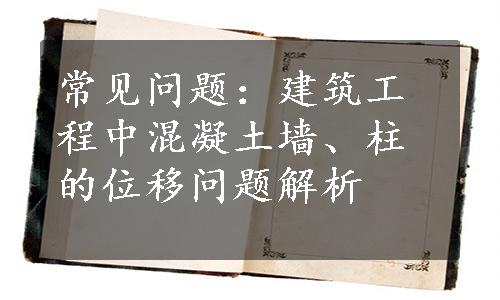 常见问题：建筑工
程中混凝土墙、柱
的位移问题解析